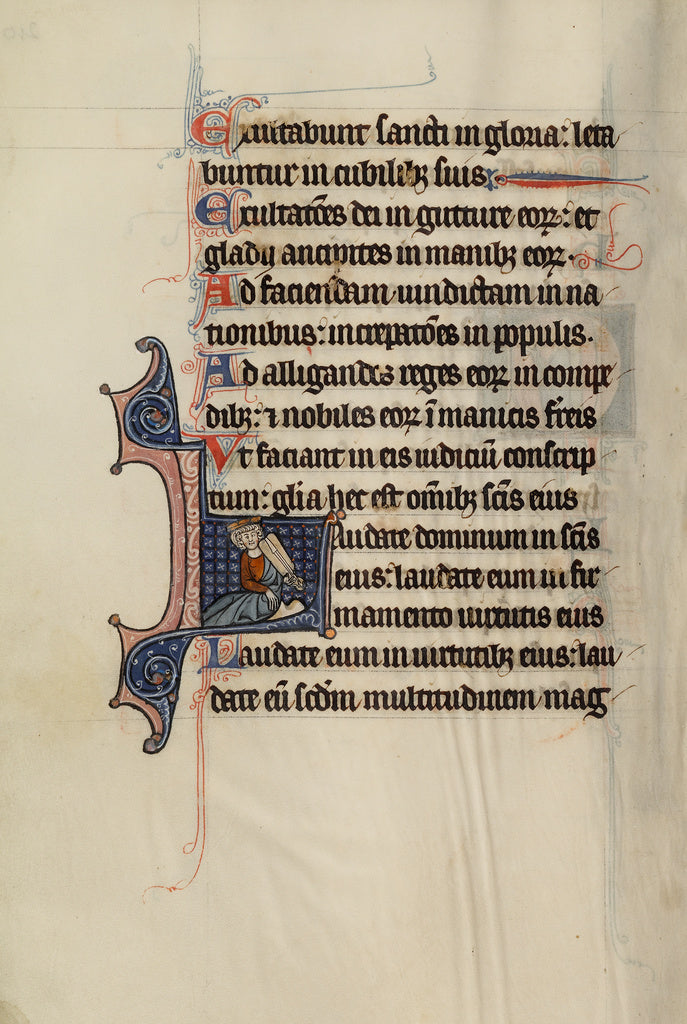 Exultabunt sancti in gloria: leta
buntur in cubilibꝫ suis
Exultatões dei in gutture eoꝝ: et
gladii ancipites in manibꝫ eoꝝ.
Ad faciendam uindictam in na
tionibus: increpatões in populis.
Ad alligandos reges eoꝝ in compe
dibꝫ: ⁊ nobiles eoꝝ ī manicis fr̄eis
Vt faciant in eis iudiciū conscrip
tum: gl̄ia hec est om̄ibꝫ sc̄is eius
Laudate dominum in sc̄is
eius: laudate eum in fir
mamento uirtutis eius
Laudate eum in uirtutibꝫ eius: lau
date eū scd̄m multitudinem mag